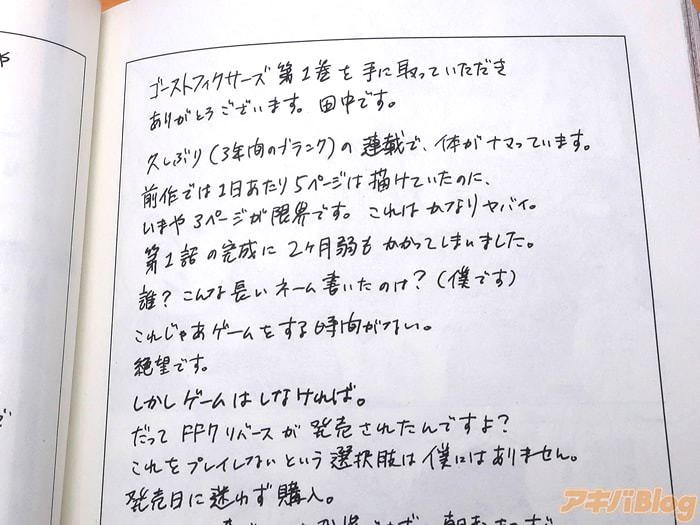 ゴーストフィクサーズ 第1巻を手に取っていただき
ありがとうございます。田中です。
久しぶり(3年間のブランク)の連載で、体がナマっています。
前作では1日あたり5ページは描けていたのに、
いまや3ページが限界です。これはかなりヤバイ。
第1話の完成に2ヶ月弱もかかってしまいました。
誰?こんな長いネーム書いたのは?(僕です)
これじゃあゲームをする時間がない。
絶望です。
しかしゲームはしなければ。
だってFF7リバースが発売されたんですよ?
これをプレイしないという選択肢は僕にはありません。
発売日に迷わず購入。
アキバBlog